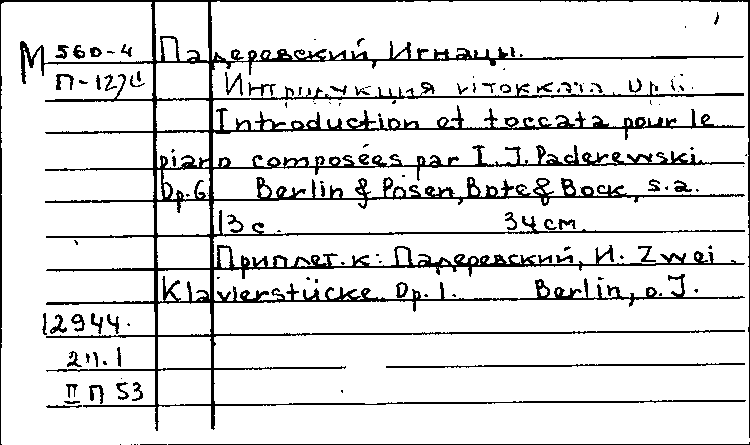 М 560-4 Падеревский, Игнацы.
П-127
Интродукция и токката. Op. 6.
Introduction et toccata pour le
piano composées par I. J. Paderewski.
Op. 6 Berlin & Posen, Bote & Bock, s. a.
13 с. 34 см.
Приплет. к: Падеревский, И. Zwei
Klavierstücke. Op. 1. Berlin, o. J.
12944.
2 н. 1
II П 53